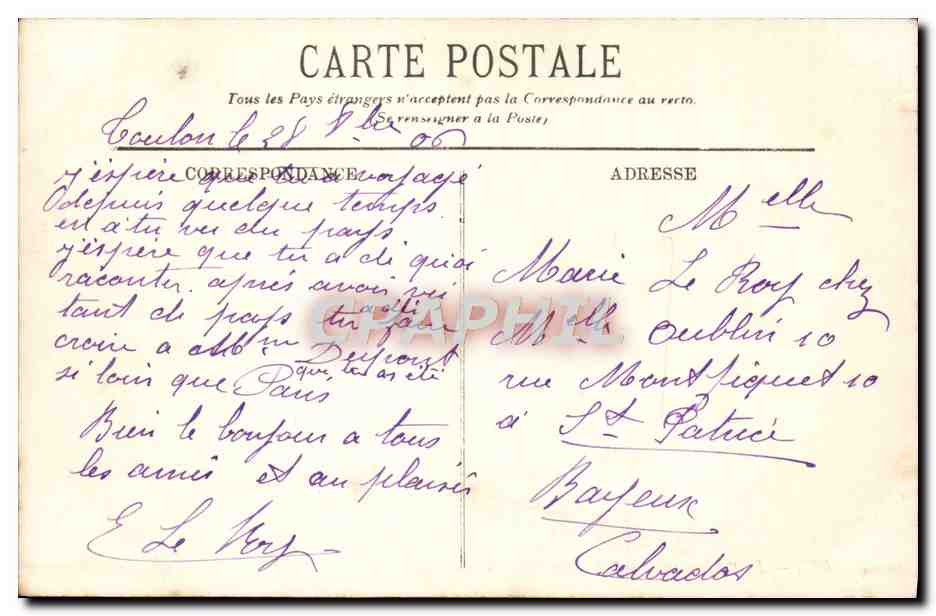 CARTE POSTALE
Tous les Pays étrangers n'acceptent pas la Correspondance au recto.
(Se renseigner à la Poste)
Toulon le 28 8bre 06
CORRESPONDANCE
j'espère que tu a voyagé
depuis quelque temps
en a tu vu du pays
j'espère que tu a de quoi
raconter après avoir vu
tant de pays tu
croire a Mm Dupont
que tu as été
si loin que Paris
Bien le bonjour a tous
les amis et au plaisir
E Le Roy
ADRESSE
Melle
Marie Le Roy chez
Melle Oublin 10
rue Montfiquet 10
à St Patrice
Bayeux
Calvados
CPAPHIL